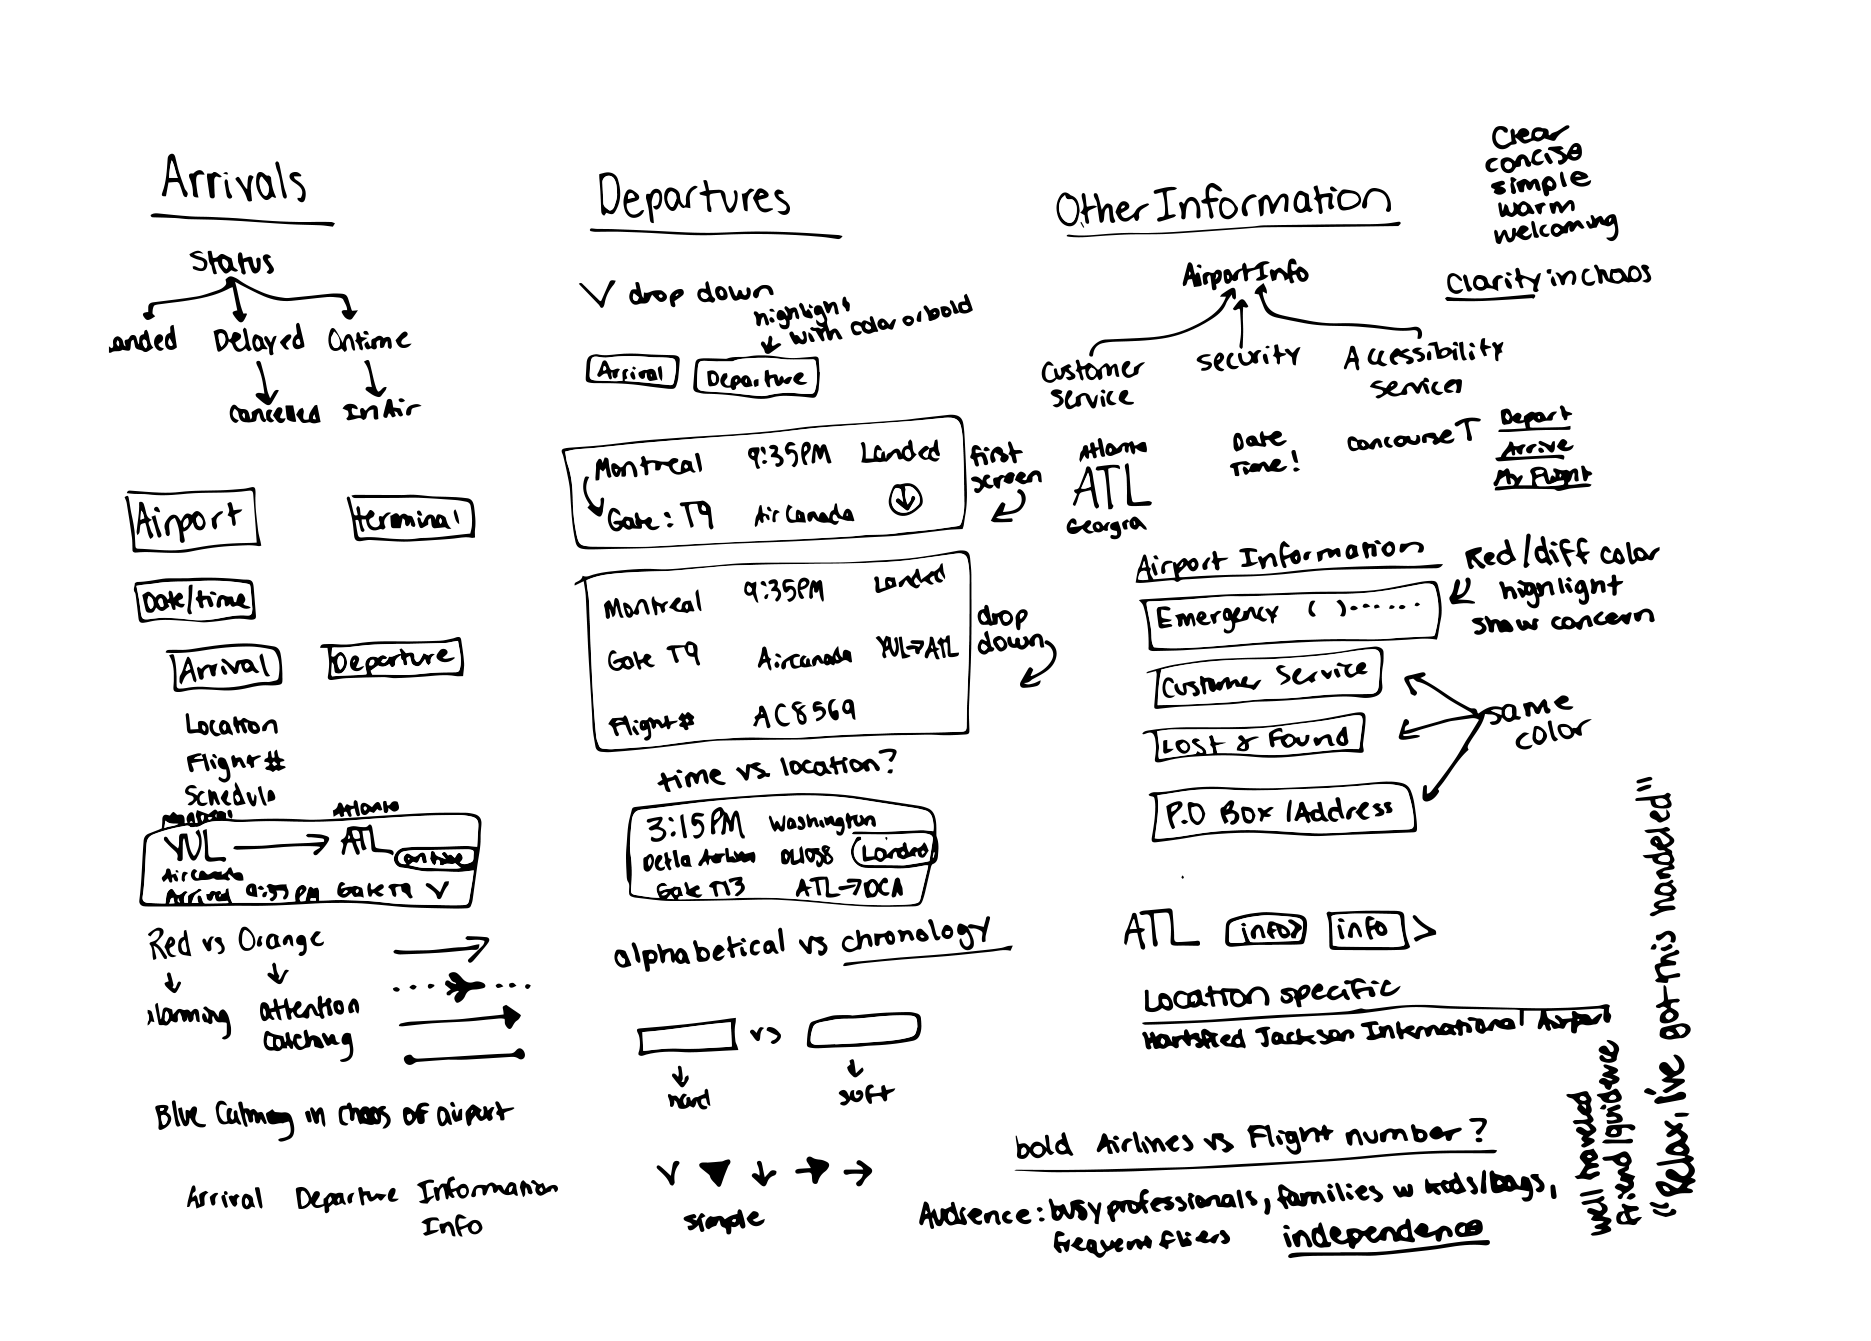 Arrivals
Status
anded Delayed Ontime
Cancelled In Air
Airport terminal
Date/time
Arrival Departure
Location
Flight #
Schedule
Montreal Atlanta
YUL ATL
ontime
Air Canada
Arrival 9:35 PM Gate T9
Red vs Orange
alarming attention
catching
Blue Calming in chaos of airport
Arrival Departure Information
Info
Departures
drop down
highlight
with color or bold
Arrival Departure
Montreal 9:35PM Landed
Gate: T9 Air Canada
first
screen
Montreal 9:35PM Landed
Gate T9 Air Canada YUL→ATL
Flight # AC8569
drop
down
time vs location?
3:15PM Washington
Detla Airlines DL1058 Landed
Gate T13 ATL→DCA
alphabetical vs chronology
vs
hard soft
simple
Other Information
Airport Info
Customer
Service
Security
Accessibility
Services
Atlanta
ATL
Georgia
Date
Time!
concourse T
Depart
Arrive
My Flight
Airport Information
Emergency ( )······
Customer Service
Lost & Found
P.O Box /Address
Red/diff color
highlight
show concern
same
color
ATL info> info >
Location specific
Hartsfied Jackson International Airport
bold Airlines vs Flight number?
Audience: busy professionals, families w kids/bags,
frequent fliers independence
Clear
concise
simple
warm
welcoming
Clarity in chaos
well traveled
friend/guidence
"Relax, i've got this handeled"